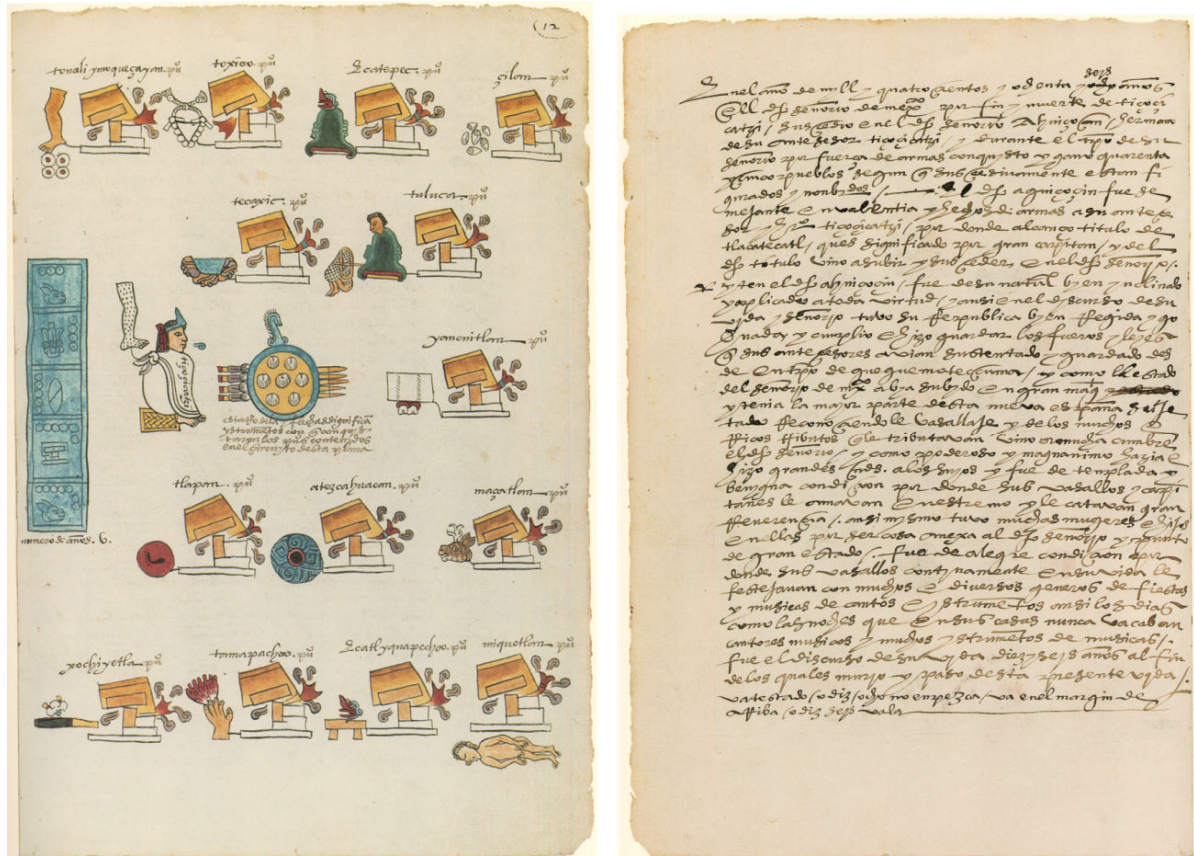 12
tonali ymoqueçayan. pu°
toxico. pu°
Ecatepec. pu°
çilan pu°
tecaxic. pu°
tuluca. pu°
yancuitlan pu°
tiçoçicatzi
esta rodela y flechas significā
ynstrumentos con q conquis
taron los pu°s contenidos
en el circuyto desta plana
numero de años. V.
tlapan. pu°
atezcahuacan. pu°
maçatlan. pu°
xochiyetla. pu°
tamapachco. pu°
Ecatlyquapechco. pu°
miquetlan. pu°
seis
En el año de mill y quatroçientos y ochenta y años
En el dho señorio de mexco por fin y muerte de tiçoçi
catzi / suçedio en el dho señorio Ahuiçoçin / hermano
de su anteçesor tiçoçicatzi / y durante el tpo de su
señorio por fuerça de armas conquisto y gano quarenta
y çinco pueblos segun q suçesivamente estan fi
gurados y nonbrados /. El dho ahuiçoçin fue se
mejante en valentia y hechos de armas a su anteçe
sor y hermo tiçoçicatzi / por donde alcanço titulo de
tlacatecatl / ques significado por gran capitan / y del
dho titulo vino a subir y suçeder en el dho señorio /.
yten el dho ahuiçoçin / fue de su natural byen ynclinado
y aplicado a toda virtud / y ansi en el discurso de su
vida y señorio tuvo su Republica byen Regida y go
vernada y cumplio e hizo guardar los fueros y leyes
q sus anteçesores avian sustentado y guardado des
de en tpo de gueguemoteccuma / y como el estado
del señorio de mexco abia subido en gran mag
y tenia la mayor parte desta nueva españa sujeta
tado Reconoçiendole vasallaje y de los muchos E
Ricos tributos q le tributavan vino en mucha cumbre
el dho señorio / y como poderoso y magnanimo hazia e
hizo grandes mds. a los suyos y fue de templada y
benigna condiçion por donde sus vasallos y capi
tanes le amavan en estremo y le catavan gran
Reverençia /. ansi mysmo tuvo muchas mugeres e hijos
en ellas por ser cosa anexa al dho señorio y punto
de gran estado /. fue de alegre condiçion por
donde sus vasallos continamente en su vida le
festejavan con muchos e diversos generos de fiestas
y musicas de cantos e ynstrumetos ansi los dias
como las noches que en sus casas nunca vacaban
cantores musicos y muchos ynstrumētos de musicas /.
fue el discurso de su vida diez y seis años al fin
de los quales murio y paso desta presente vida.
va testado / o diz / ocho no enpezca / va en el margin de
arriba / o diz seis vala